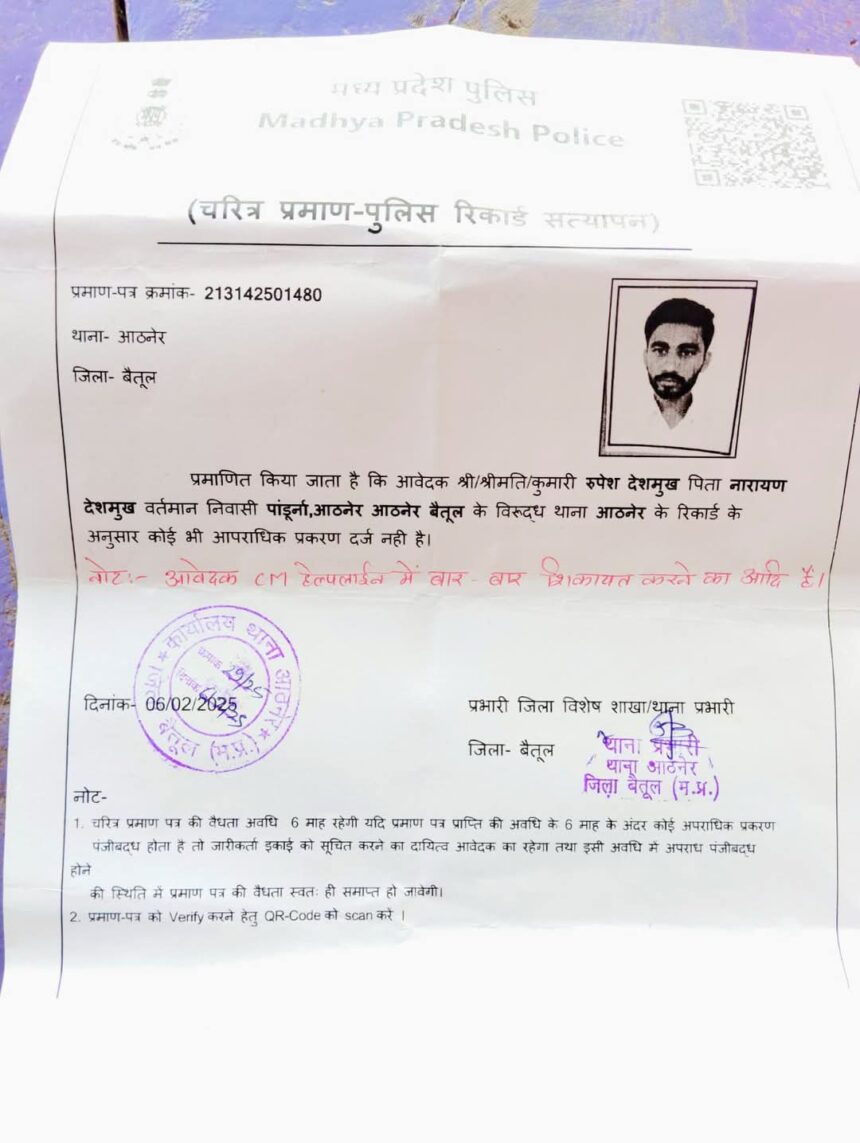 मध्य प्रदेश पुलिस
Madhya Pradesh Police
(चरित्र प्रमाण-पुलिस रिकार्ड सत्यापन)
प्रमाण-पत्र क्रमांक- 213142501480
थाना- आठनेर
जिला- बैतूल
प्रमाणित किया जाता है कि आवेदक श्री/श्रीमति/कुमारी रुपेश देशमुख पिता नारायण
देशमुख वर्तमान निवासी पांडूर्ना,आठनेर आठनेर बैतूल के विरूद्ध थाना आठनेर के रिकार्ड के
अनुसार कोई भी आपराधिक प्रकरण दर्ज नही है।
नोटः- आवेदक CM हेल्पलाईन में बार-बार शिकायत करने का आदि हैं।
कार्यालय थाना आठनेर
जिला बैतूल (म.प्र.)
क्रमांक 29/25
दिनांक
दिनांक- 06/02/2025
प्रभारी जिला विशेष शाखा/थाना प्रभारी
जिला- बैतूल
थाना प्रभारी
थाना आठनेर
जिला बैतूल (म.प्र.)
नोट-
1. चरित्र प्रमाण पत्र की वैधता अवधि 6 माह रहेगी यदि प्रमाण पत्र प्राप्ति की अवधि के 6 माह के अंदर कोई अपराधिक प्रकरण
पंजीबद्ध होता है तो जारीकर्ता इकाई को सूचित करने का दायित्व आवेदक का रहेगा तथा इसी अवधि मे अपराध पंजीबद्ध
होने
की स्थिति में प्रमाण पत्र की वैधता स्वतः ही समाप्त हो जावेगी।
2. प्रमाण-पत्र को Verify करने हेतु QR-Code को scan करे ।